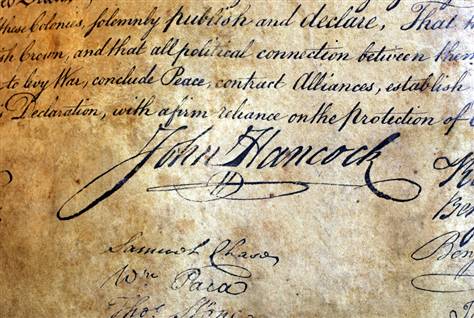 these Colonies, solemnly publish and declare, That
Crown, and that all political connection between them
to levy War, conclude Peace, contract Alliances, establish
Declaration, with a firm reliance on the protection of
John Hancock
Samuel Chase
Wm Paca
Thos Stone
Ben